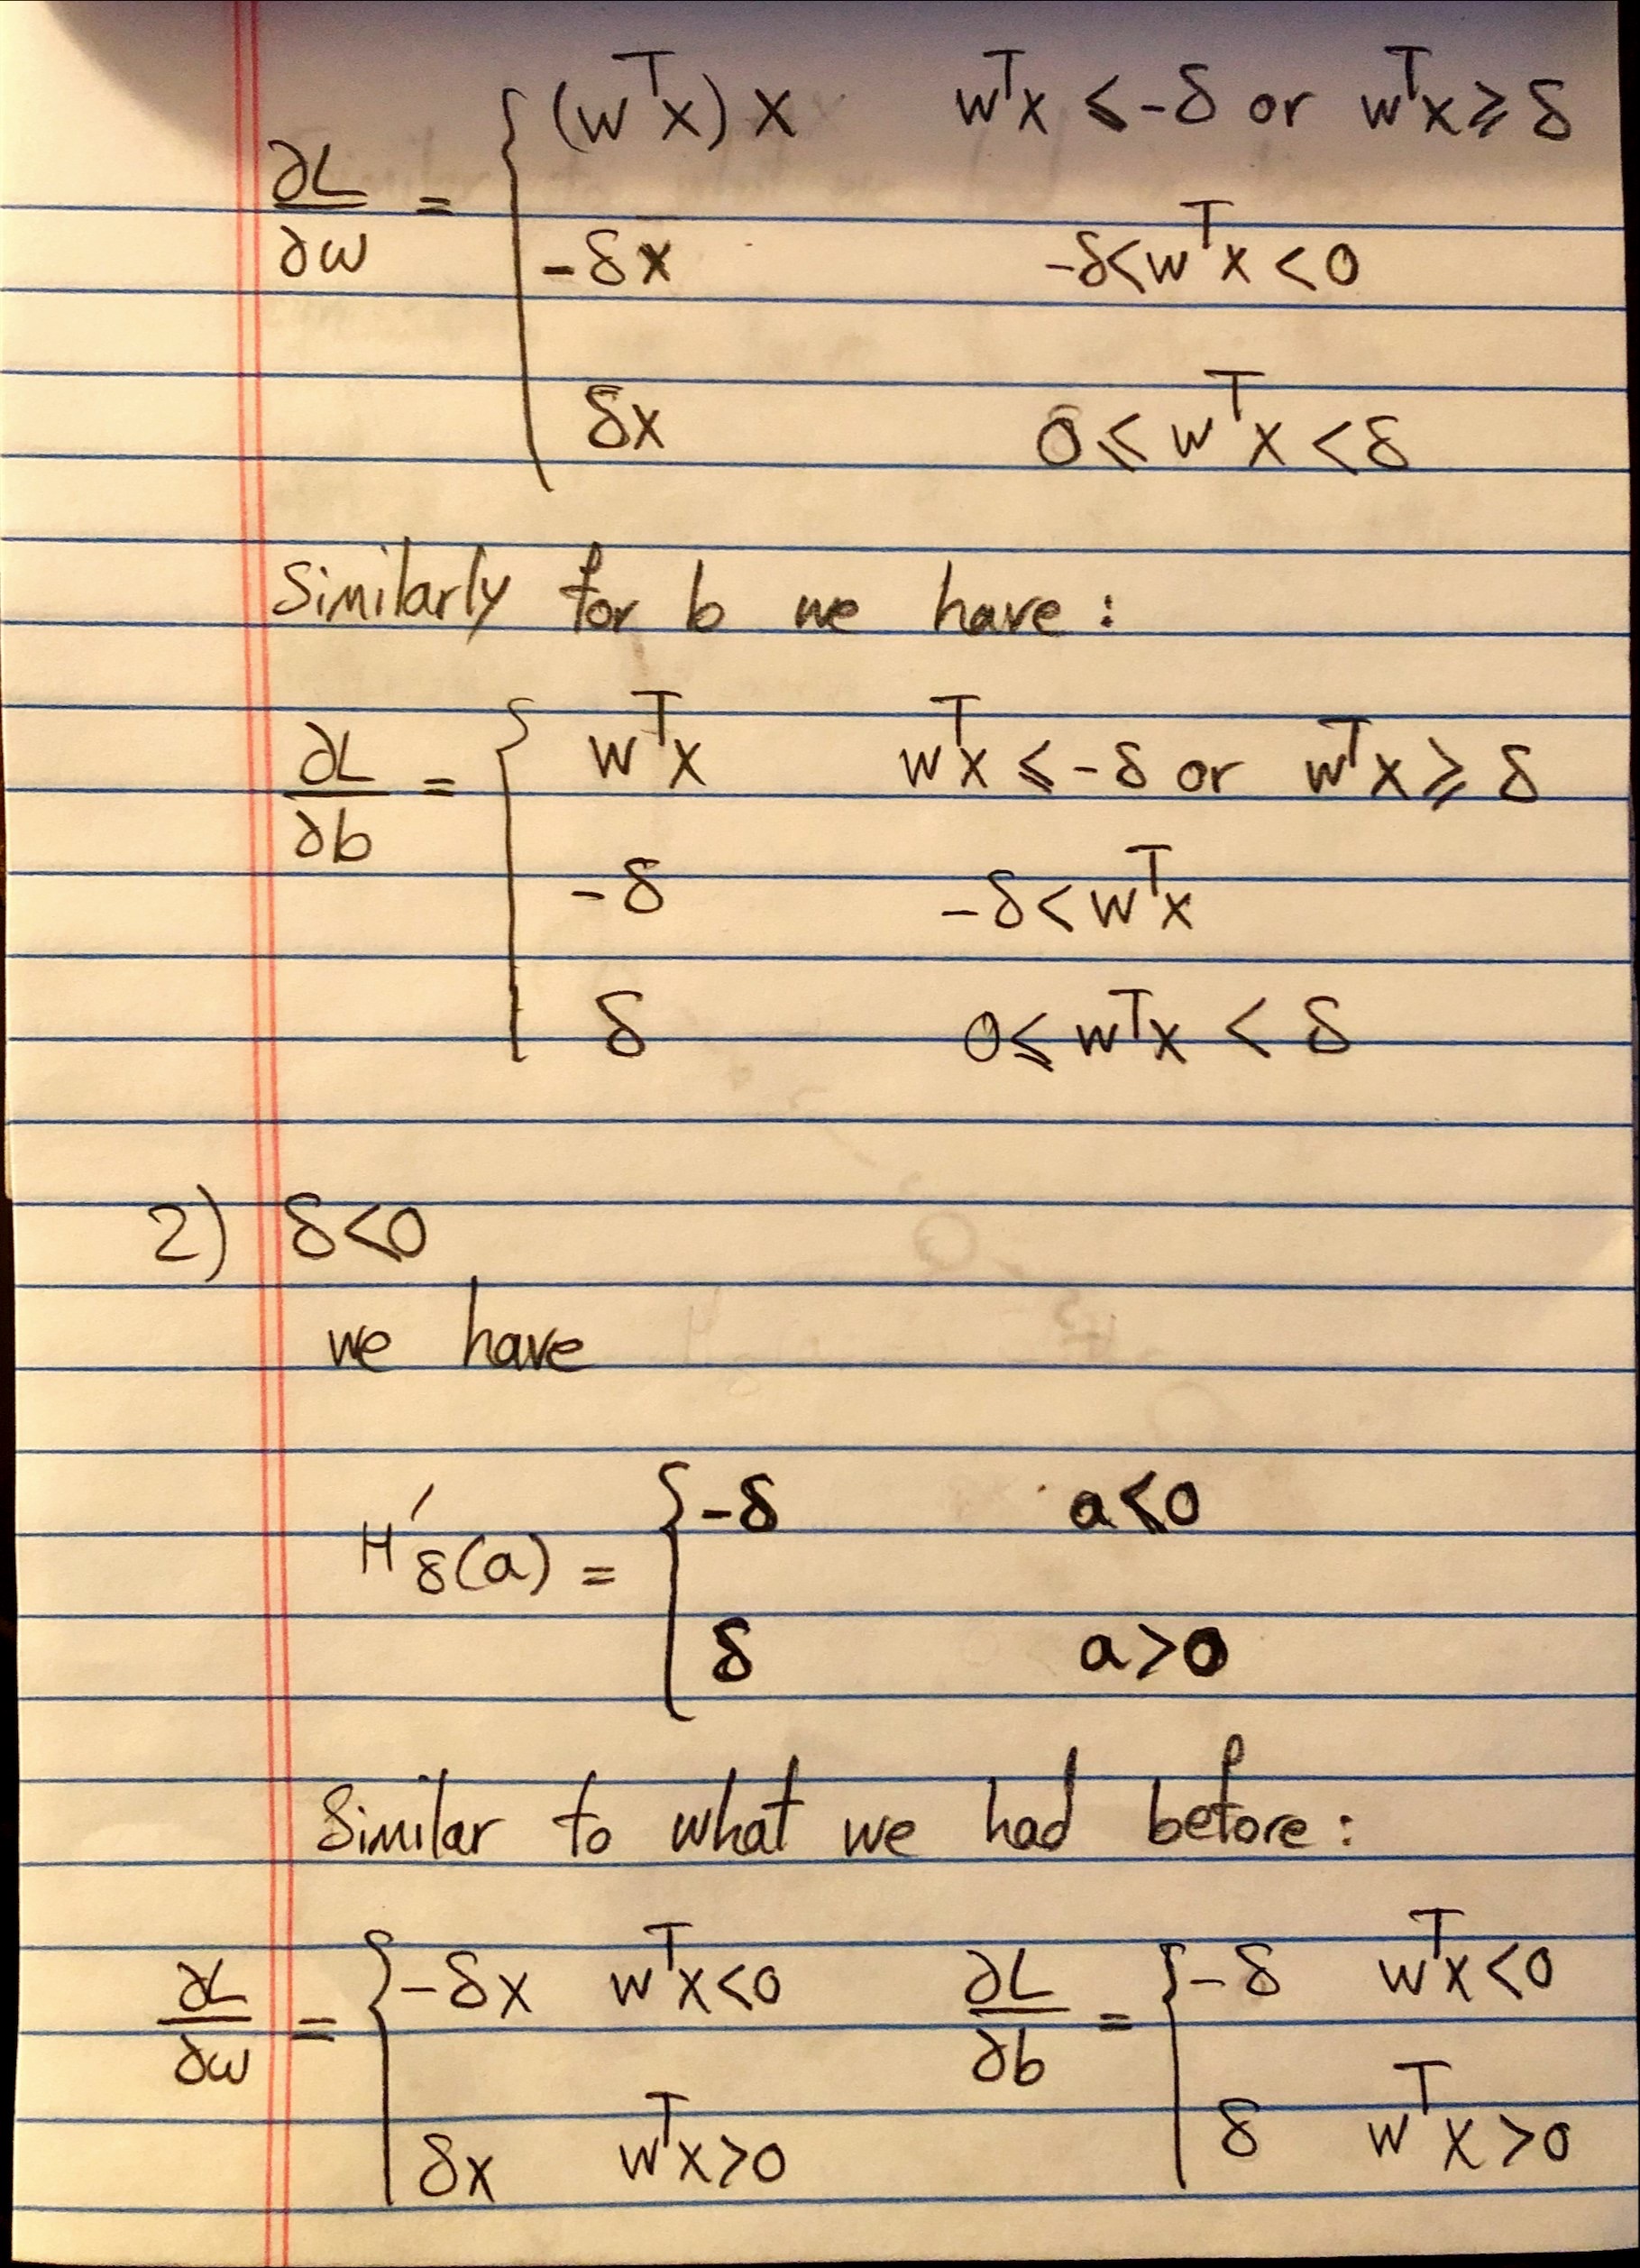 ∂L/∂w = { (wᵀx) x    wᵀx ⩽ -δ or wᵀx ⩾ δ
-δx    -δ < wᵀx < 0
δx    0 ⩽ wᵀx < δ
Similarly for b we have :
∂L/∂b = { wᵀx    wᵀx ⩽ -δ or wᵀx ⩾ δ
-δ    -δ < wᵀx
δ    0 ⩽ wᵀx < δ
2) δ<0
we have
H′δ(a) = { -δ    a<0
δ    a>0
Similar to what we had before :
∂L/∂w = { -δx    wᵀx<0    ∂L/∂b = { -δ    wᵀx<0
δx    wᵀx>0    δ    wᵀx>0